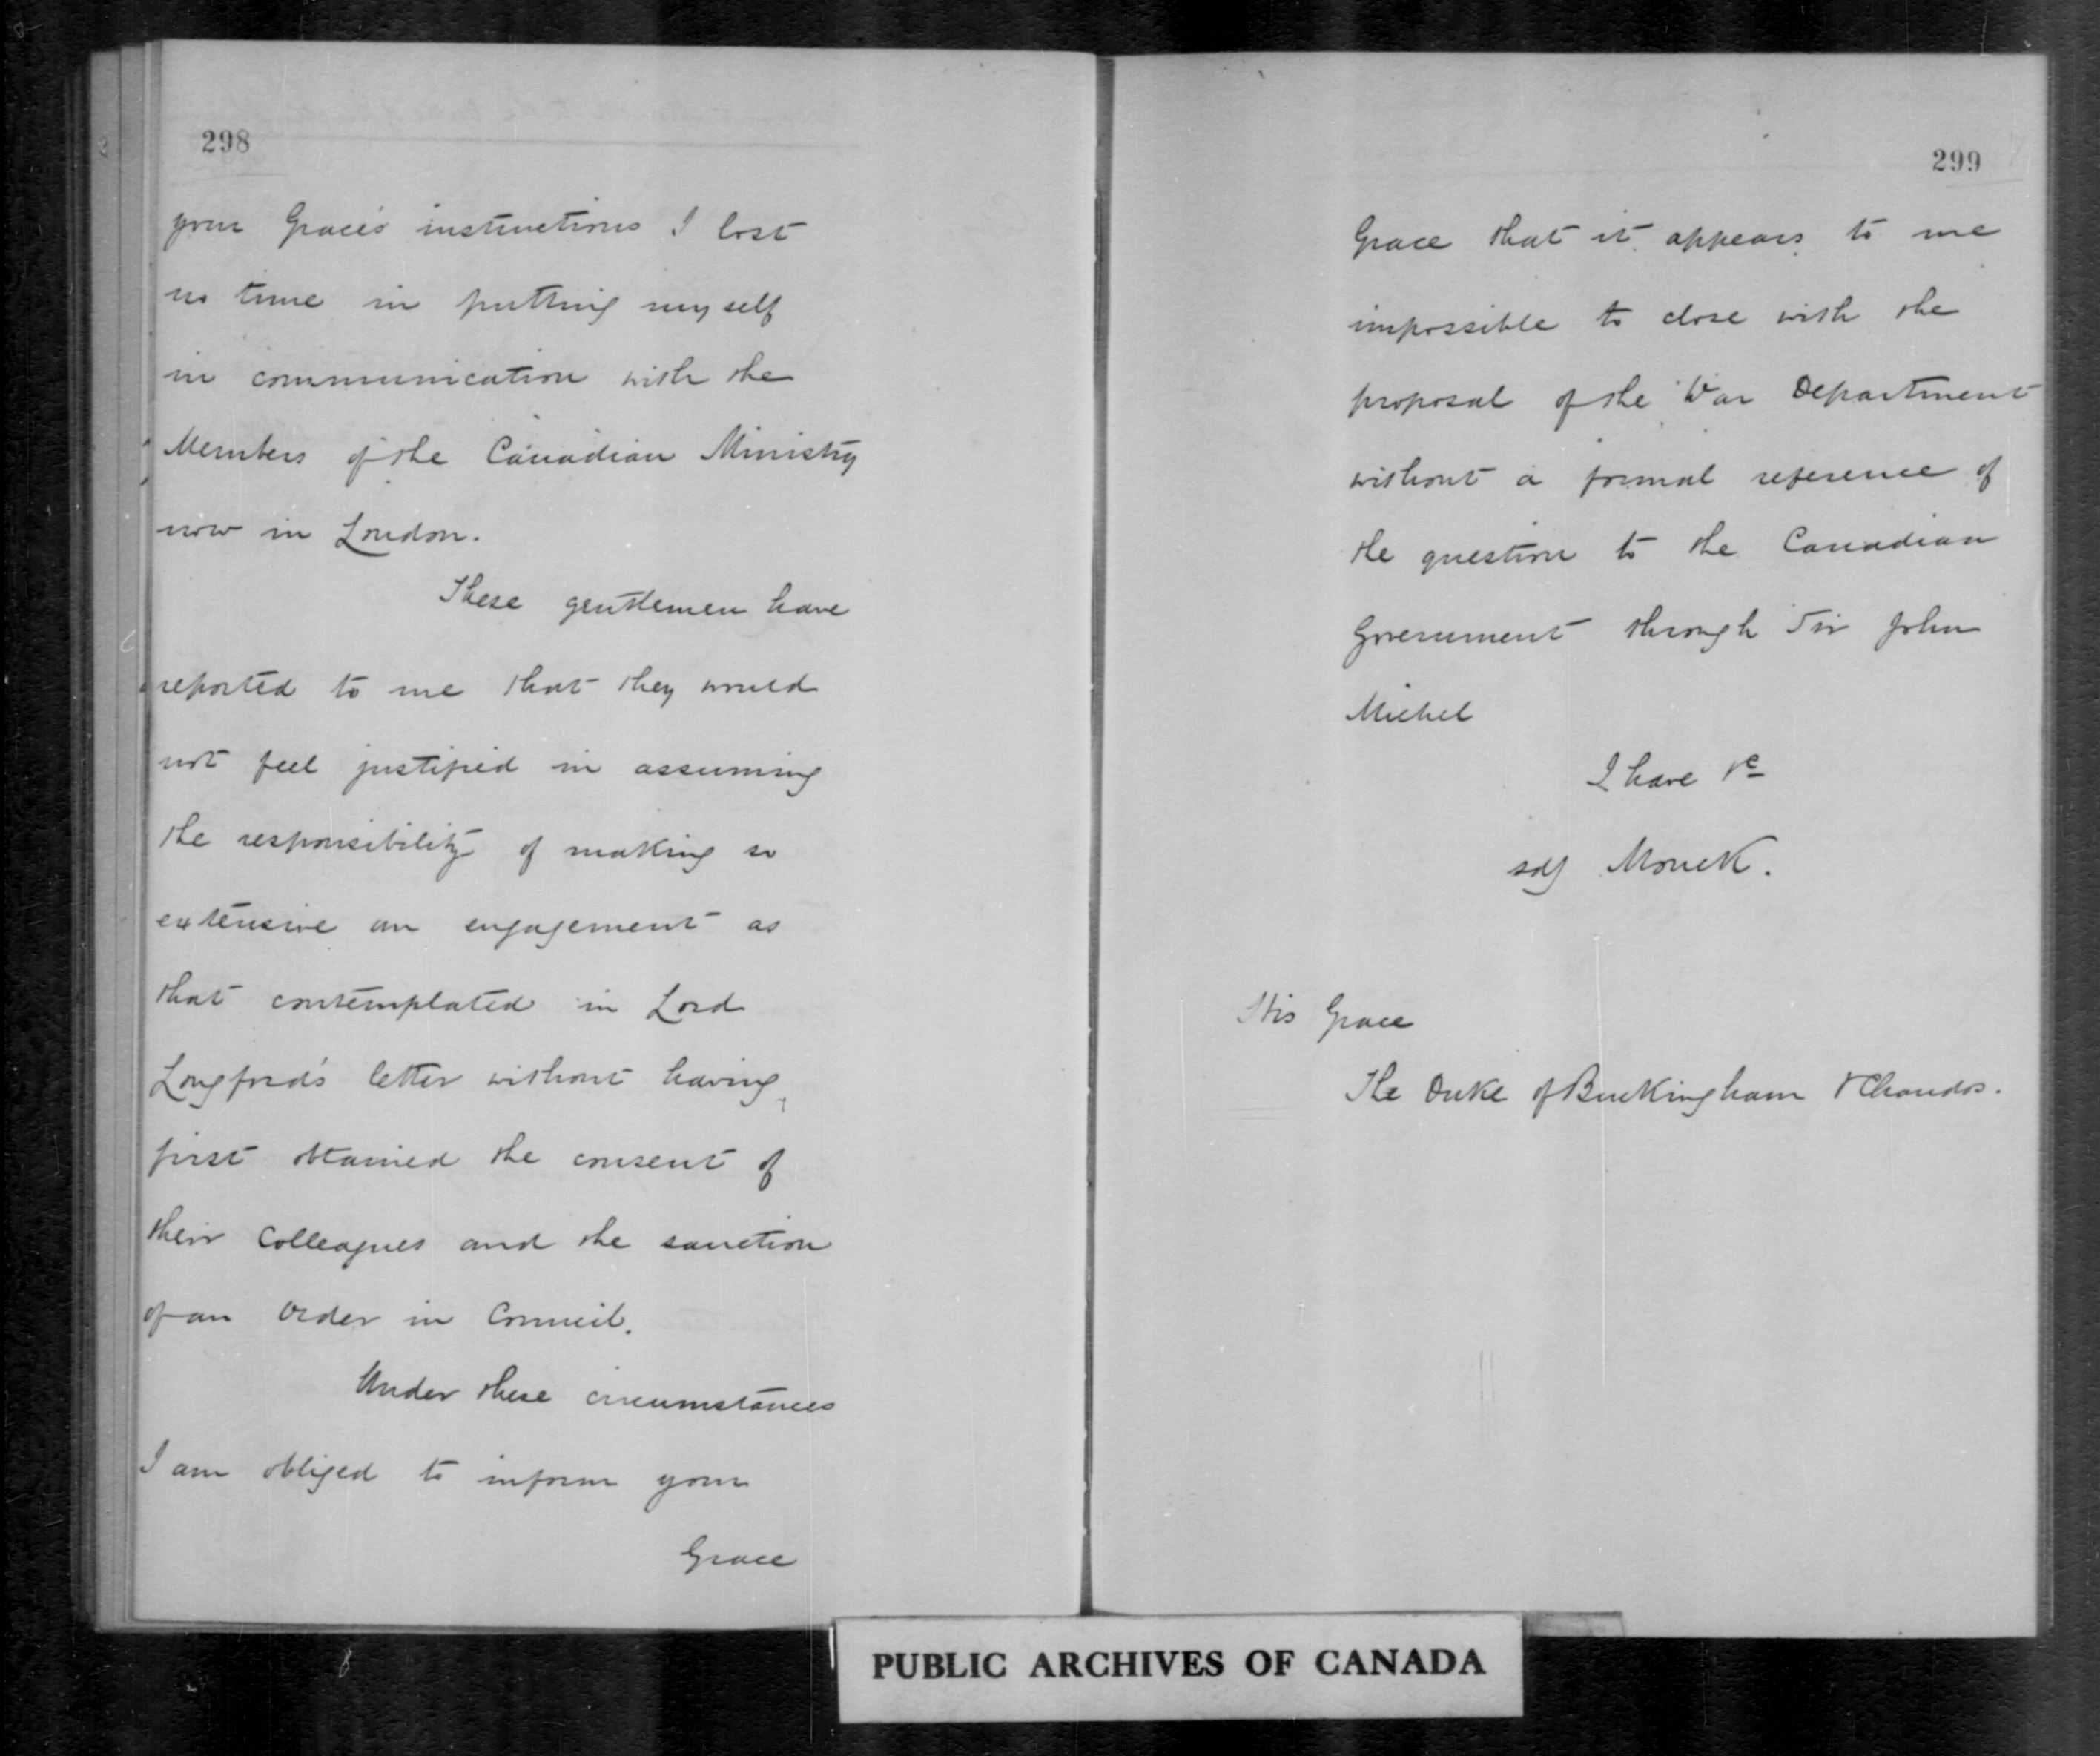 298
your Grace's instructions I lost
no time in putting myself
in communication with the
Members of the Canadian Ministry
now in London.
These gentlemen have
reported to me that they would
not feel justified in assuming
the responsibility of making so
extensive an engagement as
that contemplated in Lord
Longford's letter without having
first obtained the consent of
their Colleagues and the sanction
of an Order in Council.
Under these circumstances
I am obliged to inform your
Grace
299
Grace that it appears to me
impossible to close with the
proposal of the War Department
without a formal reference of
the question to the Canadian
Government through Sir John
Michel
I have &c
sdy Monck.
His Grace
The Duke of Buckingham & Chandos.
PUBLIC ARCHIVES OF CANADA